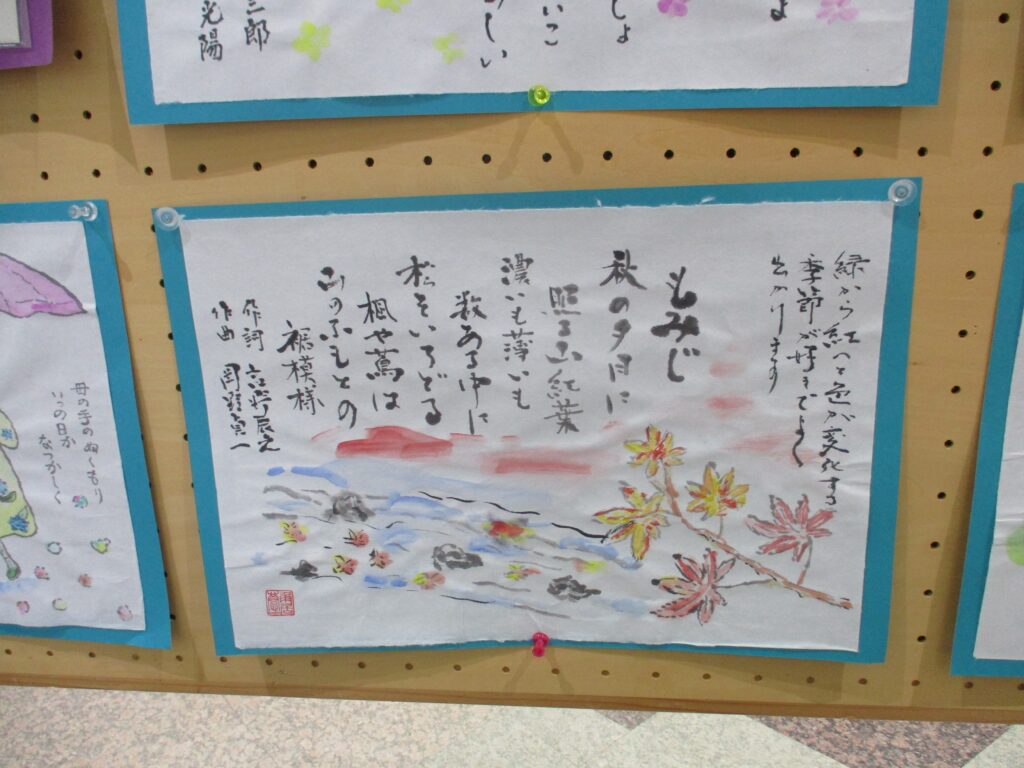 よ
しょ
いこ
しい
三郎
光陽
緑から紅へと色が変化する
季節が好きでよく
出かけます
もみじ
秋の夕日に
照る山紅葉
濃いも薄いも
数ある中に
松をいろどる
楓や蔦は
山のふもとの
裾模様
作詞 高野辰之
作曲 岡野貞一
母の手のぬくもり
いつの日か
なつかしく